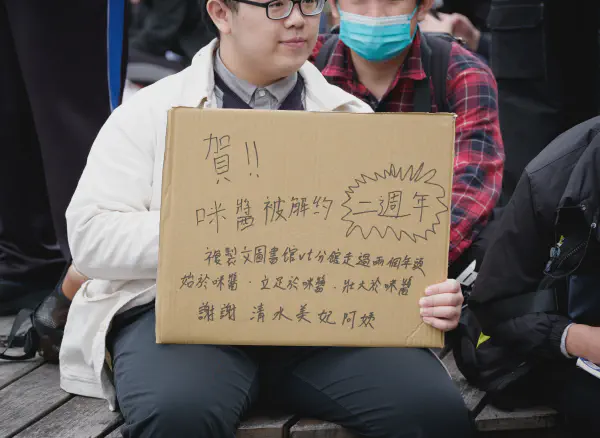 賀!!
咪醬被解約 二週年
複製文圖書館vt分館走過兩個年頭
始於咪醬、立足於咪醬、壯大於咪醬
謝謝 清水美妃阿姨